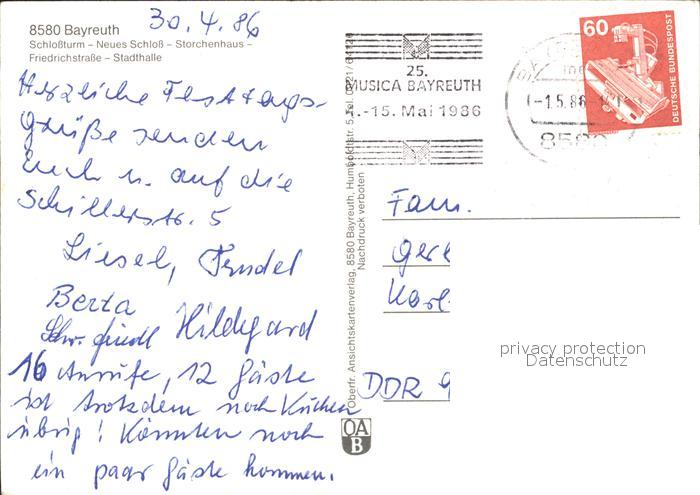 8580 Bayreuth
Schloßturm – Neues Schloß – Storchenhaus –
Friedrichstraße – Stadthalle
30.4.86
Herzliche Festtags-
grüße senden
Euch u. auf die
Schillerstr. 5
Liesel, Trudel
Berta
Schw. Friedl Hildegard
16 Anrufe, 12 Gäste
ist trotzdem noch Kuchen
übrig! Könnten noch
ein paar Gäste kommen.
Oberfr. Ansichtskartenverlag, 8580 Bayreuth, Humboldtstr. 5, Tel.
Nachdruck verboten
OA
B
25.
MUSICA BAYREUTH
.-15. Mai 1986
-1.5.86
858
60
DEUTSCHE BUNDESPOST
Fam.
Ger
Karl
DDR 9
privacy protection
Datenschutz